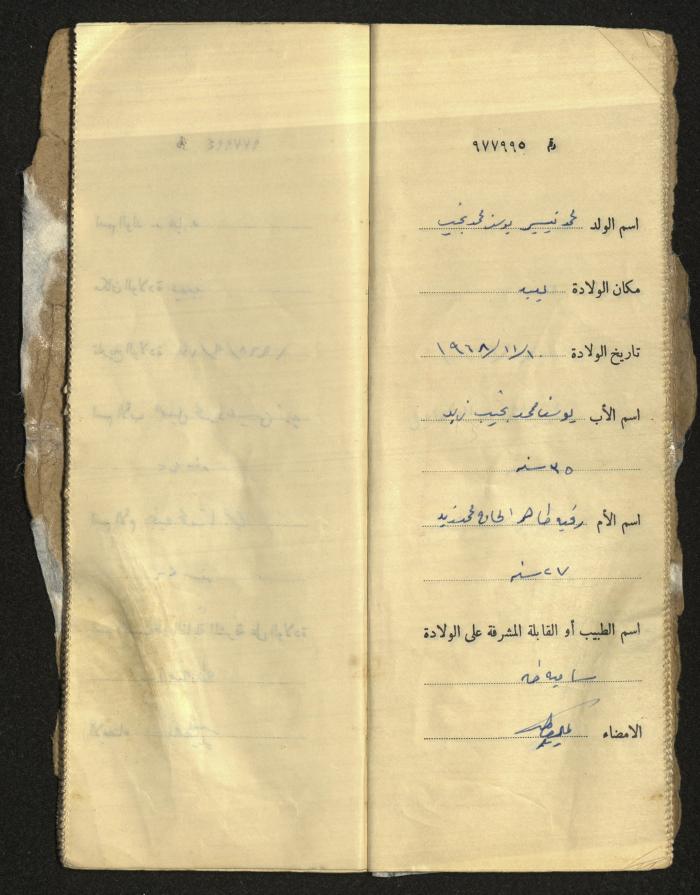 رقم ٩٧٧٩٩٥
اسم الولد محمد تيسير يوسف محمد نجيب
مكان الولادة
تاريخ الولادة ١٩٦٨/١١/١٠
اسم الأب يوسف محمد نجيب زايد
٣٥ سنه
اسم الأم رقيه طاهر الحاج محمد زيد
٢٧ سنه
اسم الطبيب أو القابلة المشرفة على الولادة
ساميه طه
الامضاء